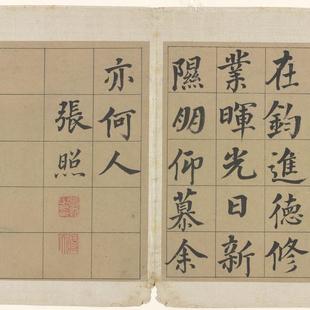 在鈞進德修
業暉光日新
隰朋仰慕余
亦何人
張照